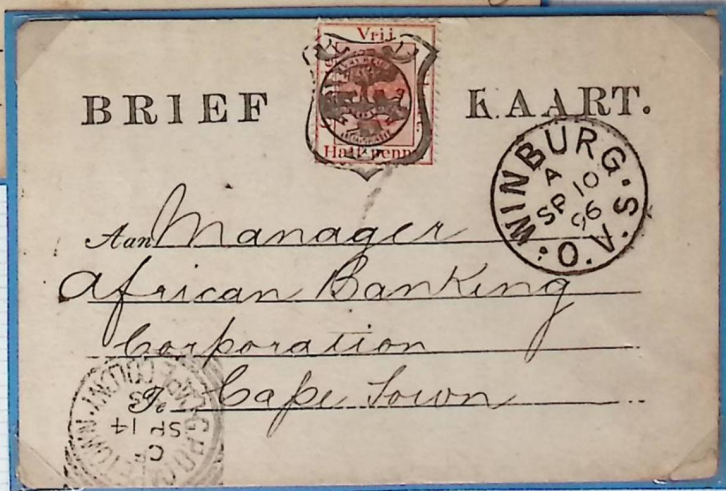 Vrij
BRIEF KAART.
Half penny
WINBURG. O.V.S.
A
SP 10
96
Aan Manager
African Banking
Corporation
Te Cape Town
G.P.O. CAPE TOWN
SP 14